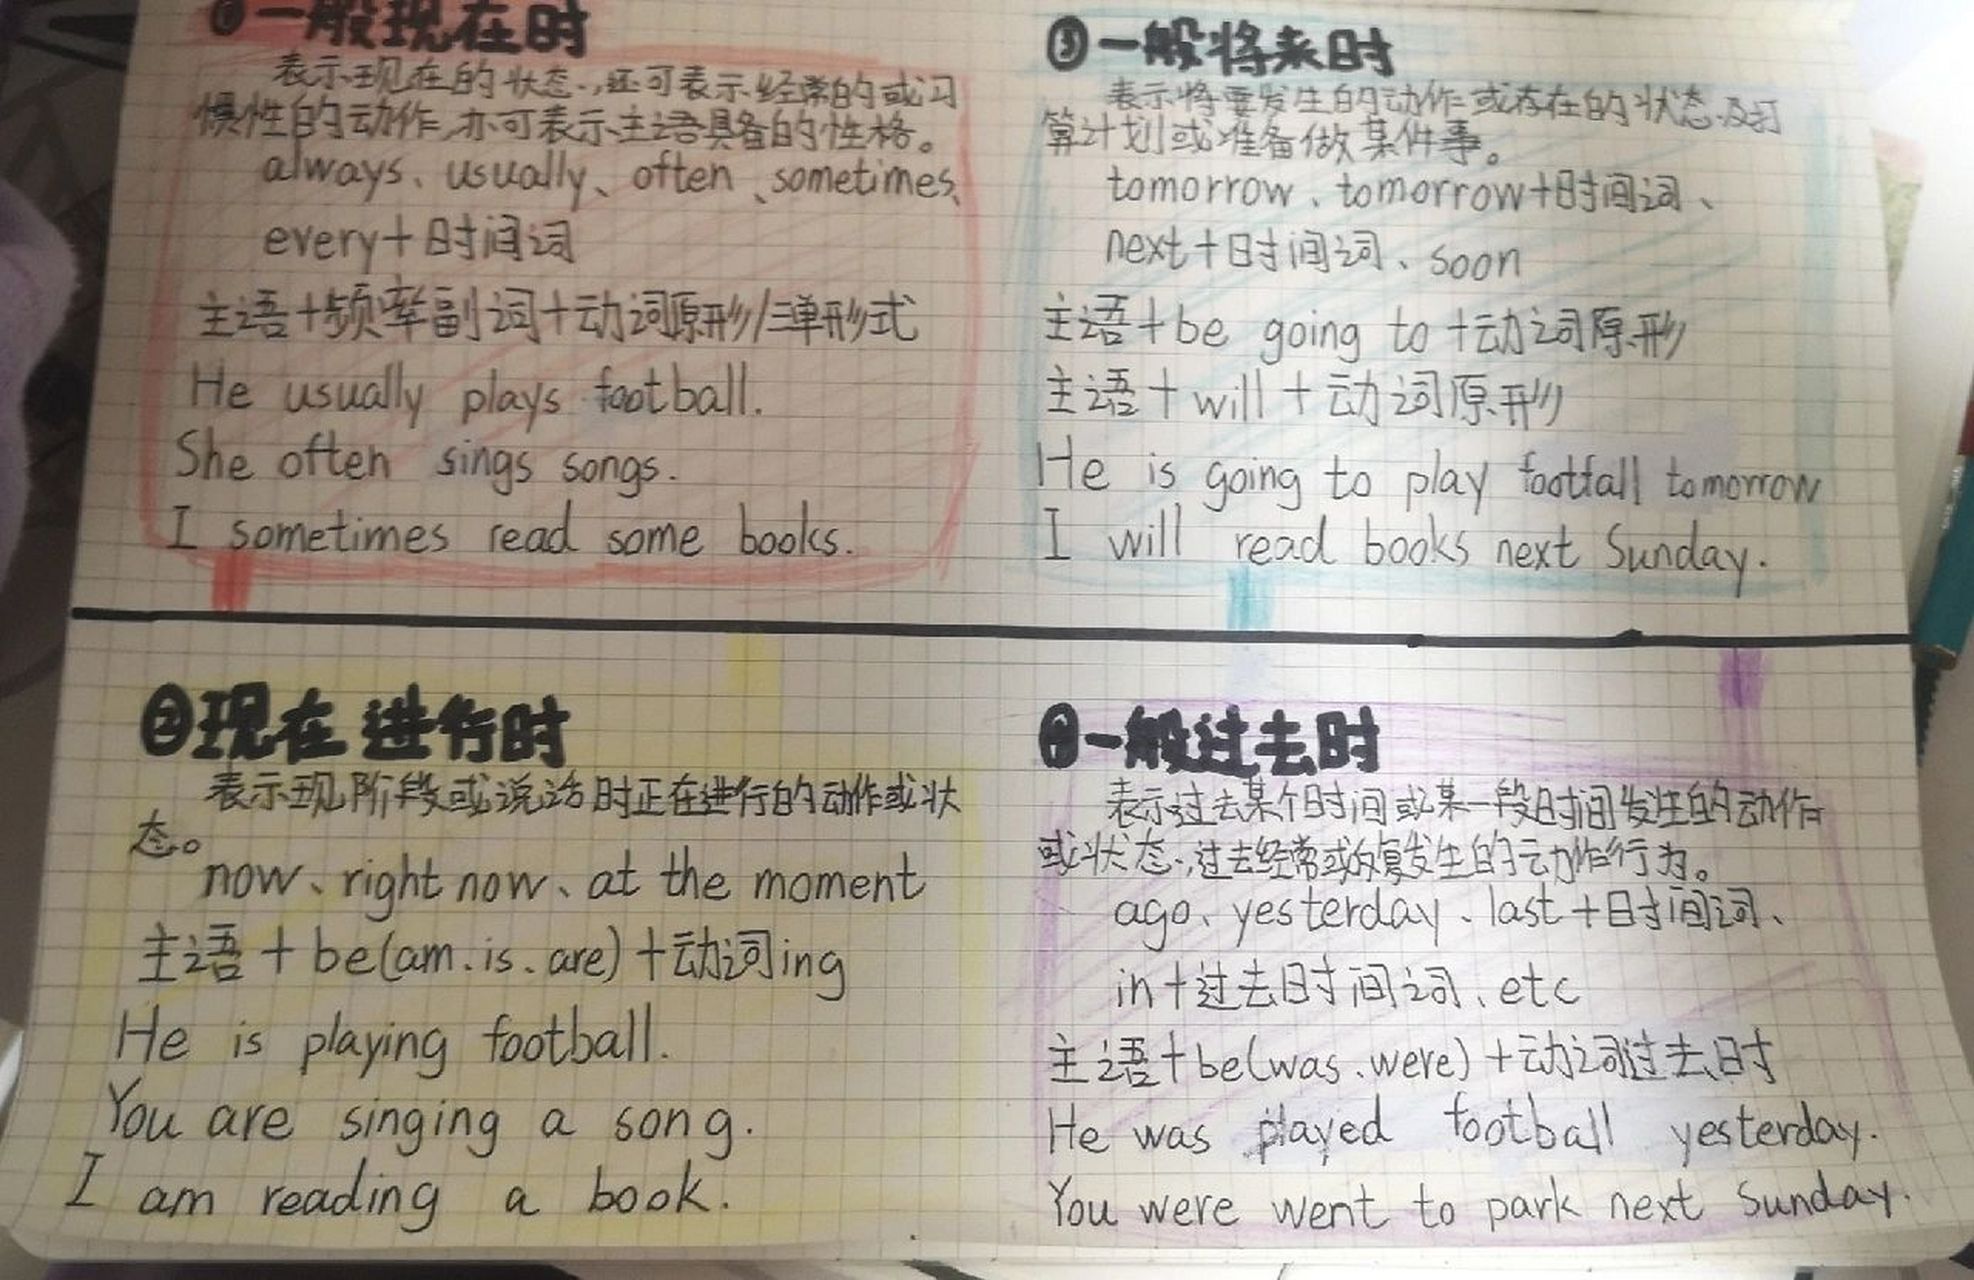 ①一般现在时
表示现在的状态,还可表示经常的或习
惯性的动作,亦可表示主语具备的性格。
always、usually、often、sometimes、
every+时间词
主语+频率副词+动词原形/三单形式
He usually plays football.
She often sings songs.
I sometimes read some books.
②现在进行时
表示现阶段或说话时正在进行的动作或状
态。
now、right now、at the moment
主语+be(am.is.are)+动词ing
He is playing football.
You are singing a song.
I am reading a book.
③一般将来时
表示将要发生的动作或存在的状态及打
算计划或准备做某件事。
tomorrow、tomorrow+时间词、
next+时间词、soon
主语+be going to+动词原形
主语+will+动词原形
He is going to play footfall tomorrow
I will read books next Sunday.
④一般过去时
表示过去某个时间或某一段时间发生的动作
或状态,过去经常或反复发生的动作行为。
ago、yesterday、last+时间词、
in+过去时间词、etc
主语+be(was.were)+动词过去时
He was played football yesterday.
You were went to park next Sunday.